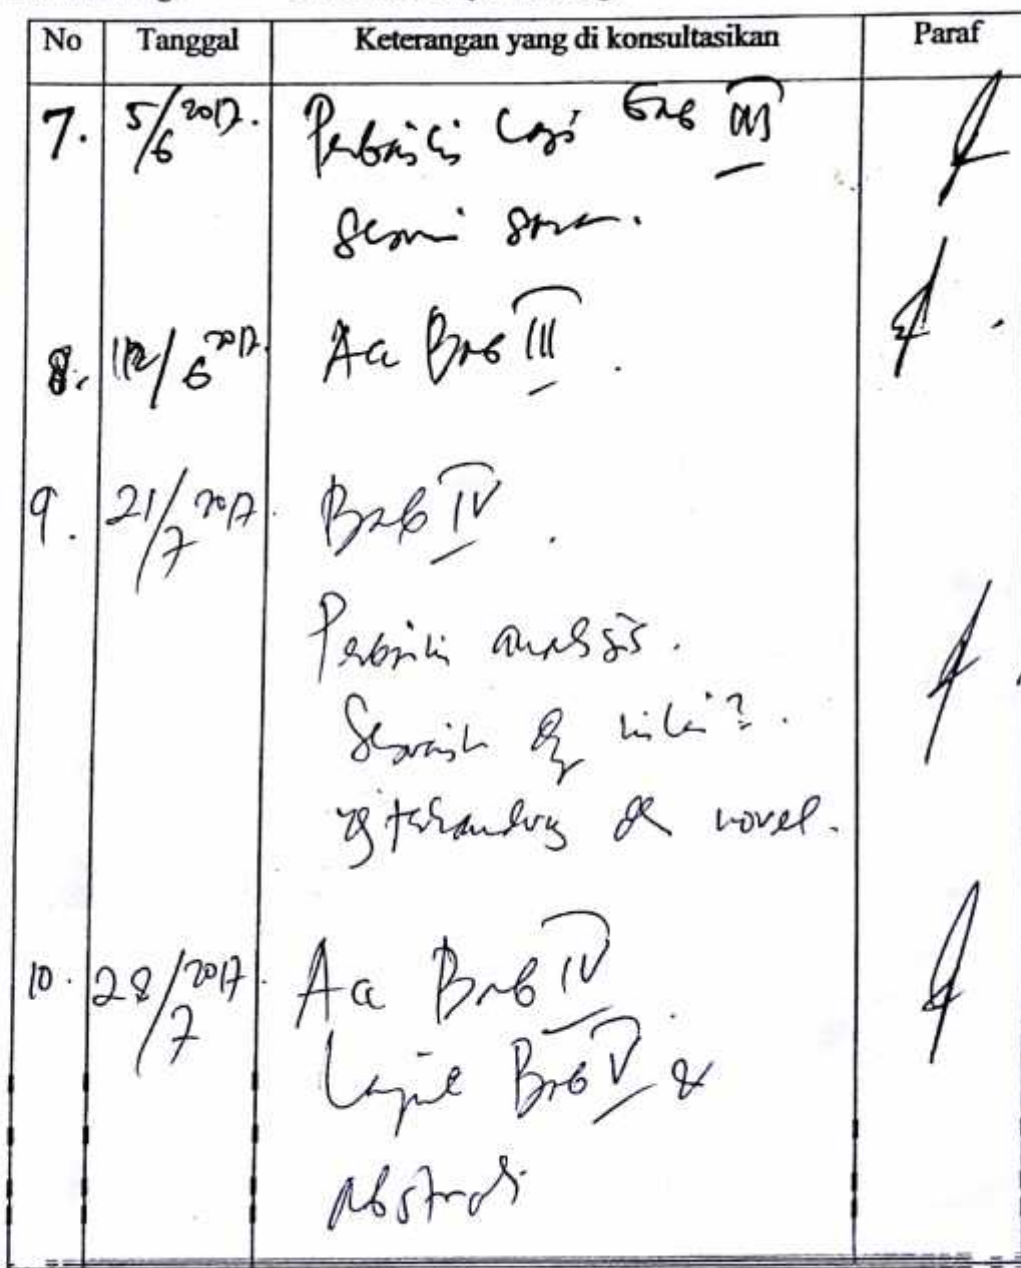 No Tanggal Keterangan yang di konsultasikan Paraf
7. 5/6 2017. Perbaiki lagi Bab III
sesuai saran.
8. 6 2017. Acc Bab III.
9. 21/7 2017 Bab IV.
Perbaiki analisis.
nilai2.
yg terkandung novel.
10. 28/7 2017. Acc Bab IV.
Lanjut Bab V &
Abstrak